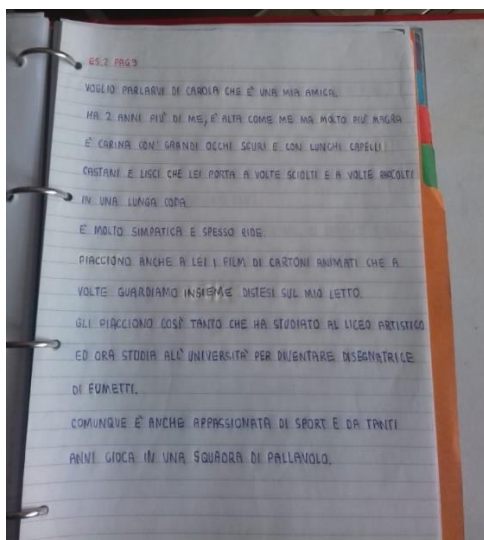 ES.2 PAG9
VOGLIO PARLARVI DI CAROLA CHE E' UNA MIA AMICA.
HA 2 ANNI PIU' DI ME, E' ALTA COME ME MA MOLTO PIU' MAGRA
E' CARINA CON' GRANDI OCCHI SCURI E CON LUNGHI CAPELLI
CASTANI E LISCI CHE LEI PORTA A VOLTE SCIOLTI E A VOLTE RACCOLTI
IN UNA LUNGA CODA.
E MOLTO SIMPATICA E SPESSO RIDE.
PIACCIONO ANCHE A LEI I FILM DI CARTONI ANIMATI CHE A
VOLTE GUARDIAMO INSIEME DISTESI SUL MIO LETTO.
GLI PIACCIONO COSI' TANTO CHE HA STUDIATO AL LICEO ARTISTICO
ED ORA STUDIA ALL' UNIVERSITA' PER DIVENTARE DISEGNATRICE
DI FUMETTI.
COMUNQUE E' ANCHE APPASSIONATA DI SPORT E DA TANTI
ANNI GIOCA IN UNA SQUADRA DI PALLAVOLO.